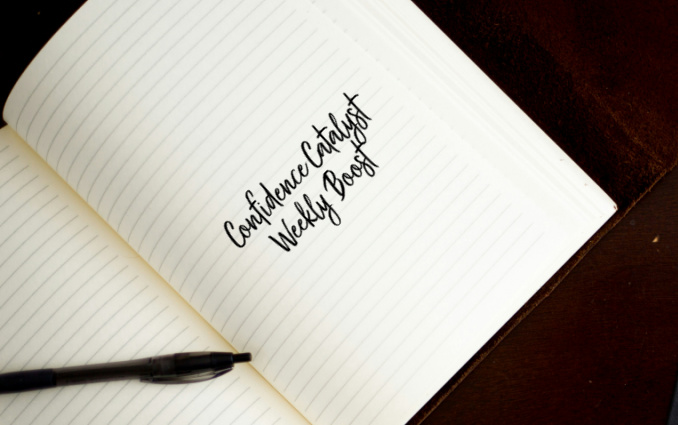 Confidence Catalyst
Weekly Boost